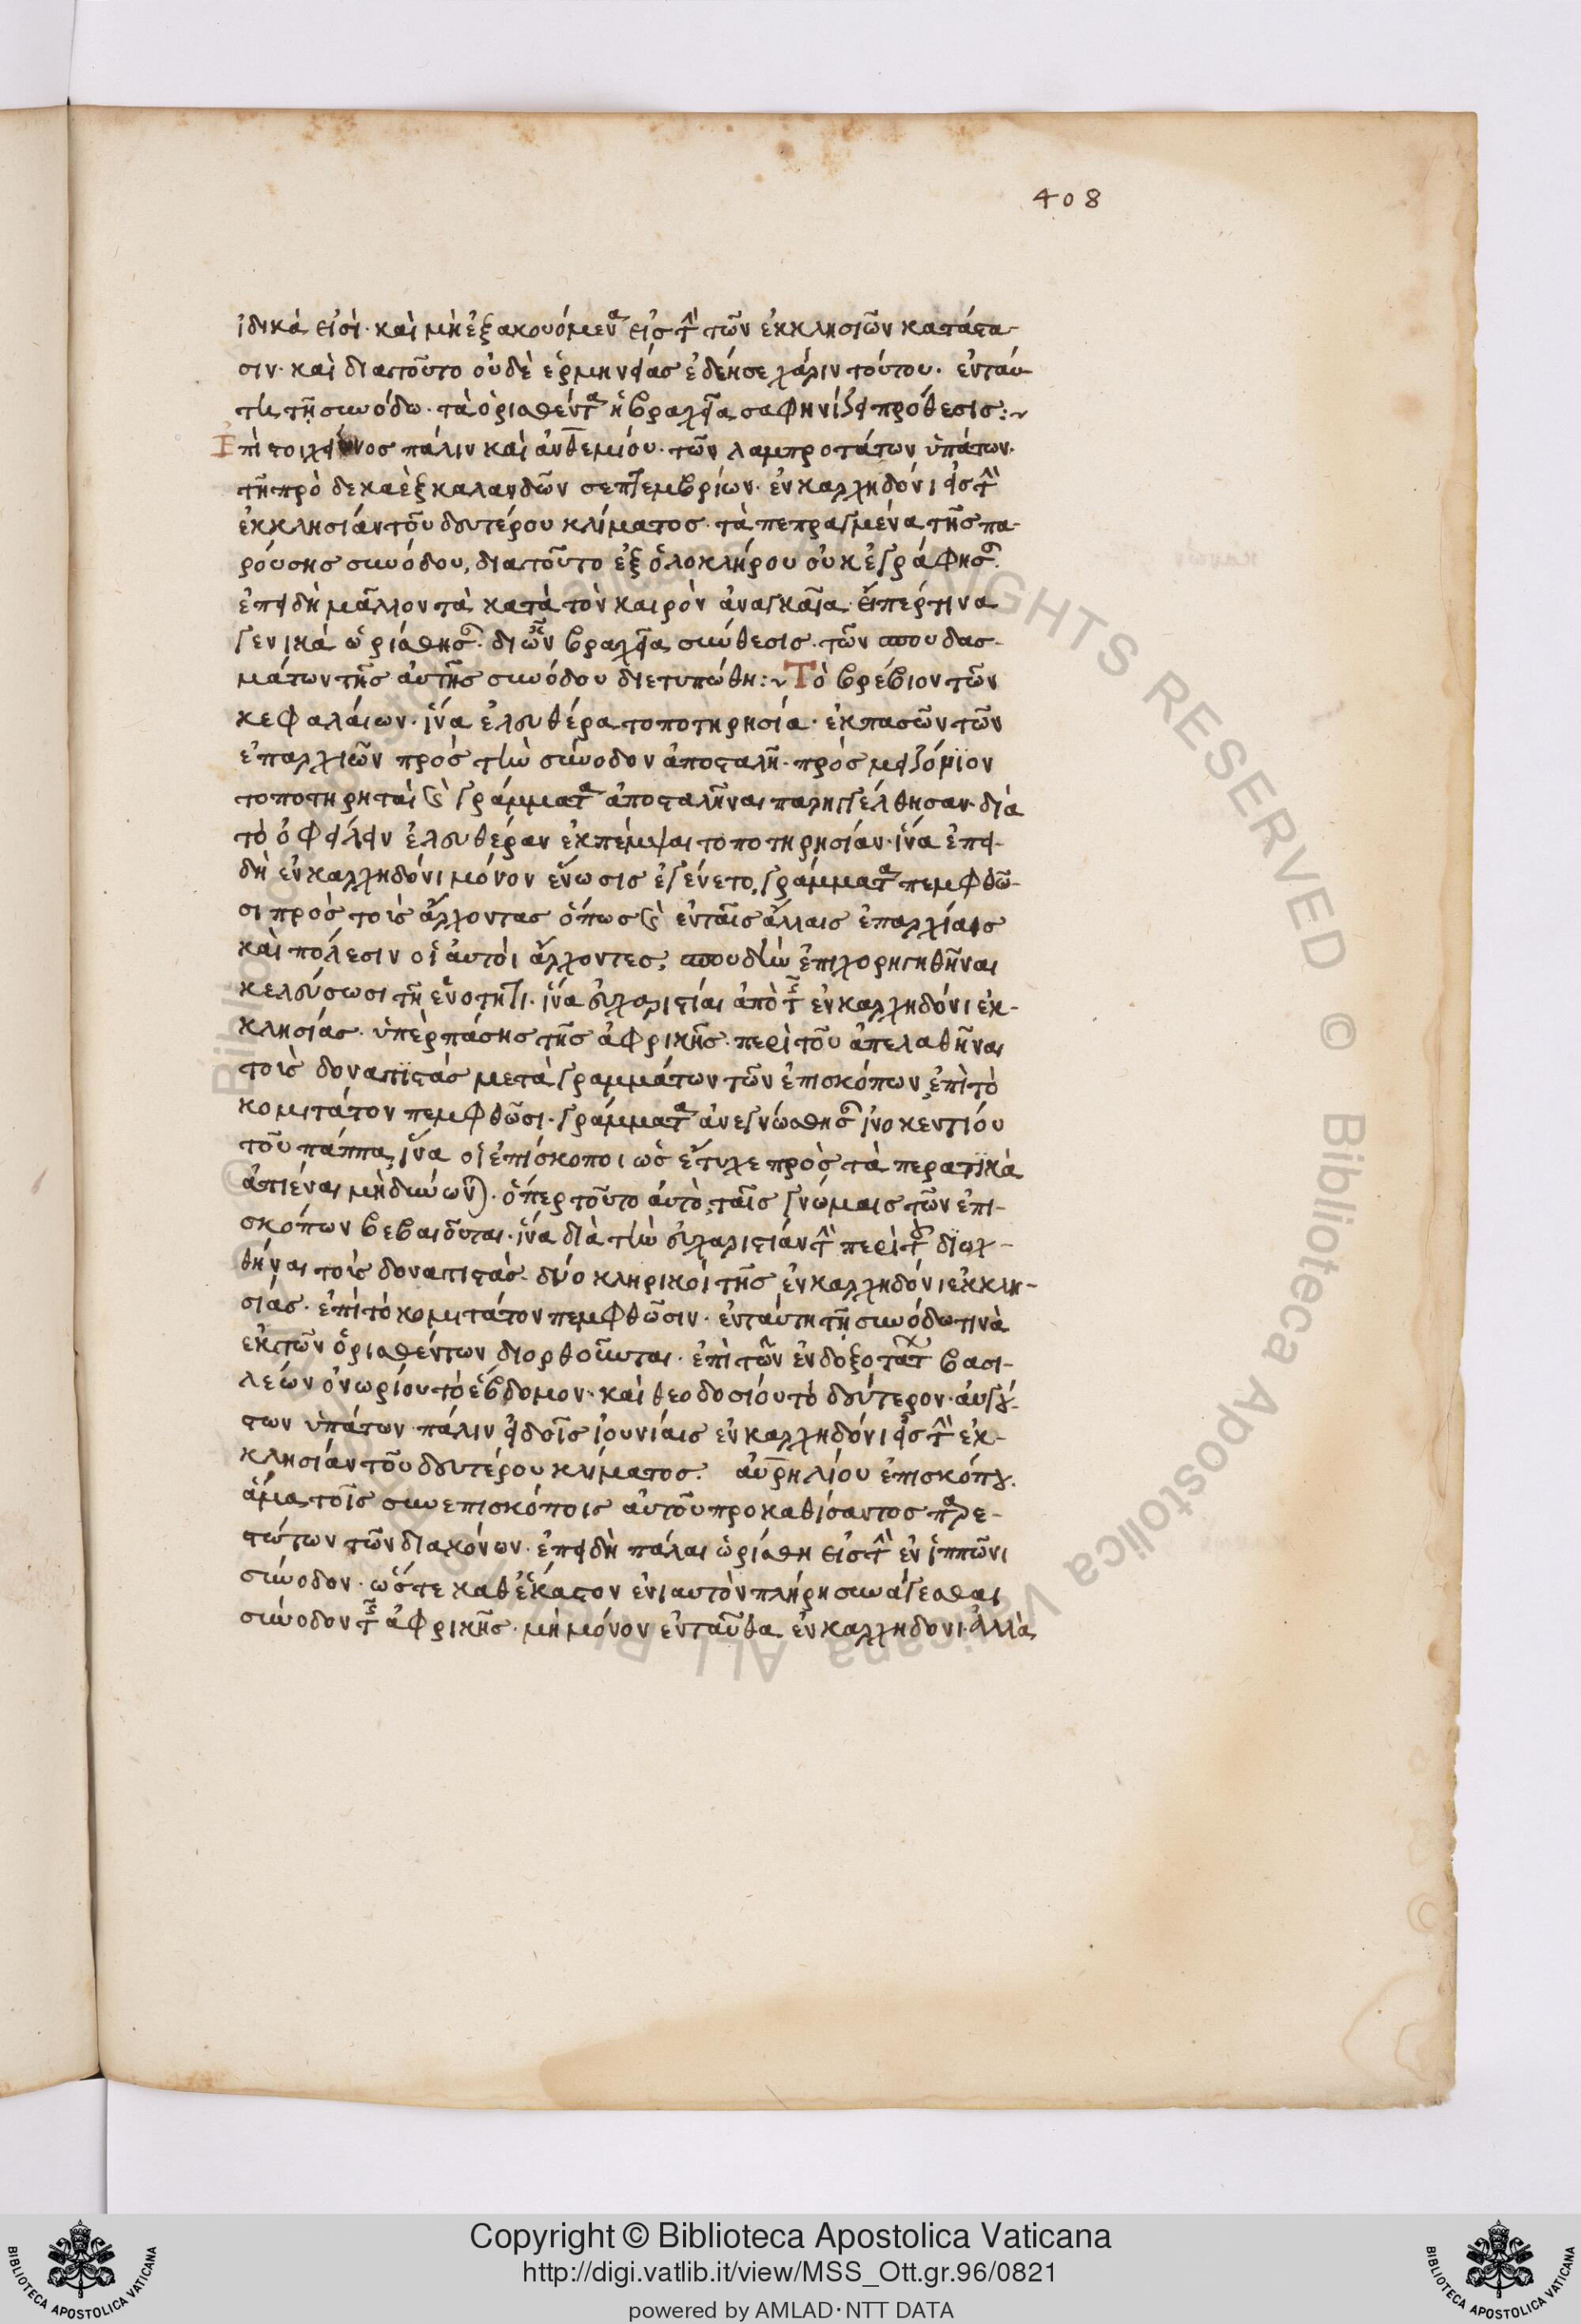 408
ἰδικά εἰσὶ· καὶ μὴ ἐξακουόμενα εἰς τὴν τῶν ἐκκλησιῶν κατάστα-
σιν· καὶ διατοῦτο οὐδὲ ἑρμηνείας ἐδέησε χάριν τούτου. ἐνταύ-
τη τῆ συνόδω· τὰ ὁρισθέντα ἡ βραχεῖα σαφηνίζει πρόθεσις:~
Ἐπὶ στοιχείωνος πάλιν καὶ ἀνθεμίου· τῶν λαμπροτάτων ὑπάτων·
τῆ πρὸ δεκαὲξ καλανδῶν σεπτεμβρίων· ἐν καλχηδόνι εἰς τὴν
ἐκκλησίαν τοῦ δευτέρου κλίματος· τὰ πεπραγμένα τῆς πα-
ρούσης συνόδου, διατοῦτο ἐξ ὁλοκλήρου οὐκ ἐγράφησαν.
ἐπειδὴ μᾶλλον τὰ κατὰ τὸν καιρὸν ἀναγκαῖα· εἴπερ τινα
γενικὰ ὡρίσθησαν· διὧν ἡ βραχεῖα σύνθεσις· τῶν σπουδασ-
μάτων τῆς αὐτῆς συνόδου διετυπώθη:~ Τὸ βρέβιον τῶν
κεφαλάιων· ἵνα ἐλευθέρα τοποτηρησία· ἐκπασῶν τῶν
ἐπαρχιῶν πρός τὴν σύνοδον ἀποσταλῆ· πρὸς μειζόνϊον
τοποτηρηταὶ καὶ γράμματα ἀποσταλῆναι παρηγγέλθησαν· διὰ
τὸ ὀφείλειν ἐλευθέραν ἐκπέμψαι τοποτηρησίαν· ἵνα ἐπει-
δὴ ἐν καλχηδόνι μόνον ἕνωσις ἐγένετο, γράμματα πεμφθῶ-
σι πρὸς τοὺς ἄρχοντας ὅπως καὶ ἐνταῖς ἄλλαις ἐπαρχίαις
καὶ πόλεσιν οἱ ἀυτὸι ἄρχοντες, σπουδὴν ἐπιχορηγηθῆναι
κελεύσωσι τῆ ἑνότητι· ἵνα εὐχαριστίαι ἀπὸ τῆς ἐν καλχηδόνι ἐκ-
κλησίας· ὑπὲρ πάσης τῆς ἀφρικῆς· περὶ τοῦ ἀπελαθῆναι
τοὺς δονατϊστάς μετὰ γραμμάτων τῶν ἐπισκόπων ἐπὶ τὸ
κομιτάτον πεμφθῶσι· γράμματα ἀνεγνώσθησαν ἰνοκεντίου
τοῦ πάππα, ἵνα οἱ ἐπίσκοποι ὡς ἔτυχε πρὸς τὰ περατϊκὰ
ἀπιέναι μὴ δύνωνται· ὅπερ τοῦτο ἀυτὸ, ταῖς γνώμαις τῶν ἐπι-
σκόπων βεβαιοῦται· ἵνα διὰ τὴν εὐχαριστίαν τὴν περὶ τοῦ διωχ-
θῆναι τοὺς δονατιστάς. δύο κληρικοὶ τῆς ἐν καλχηδόνι ἐκκλη-
σίας· ἐπὶ τὸ κομιτάτον πεμφθῶσιν· ἐνταύτη τῆ συνόδω τινὰ
ἐκ τῶν ὁρισθέντων διορθοῦνται· ἐπὶ τῶν ἐνδοξοτάτων βασι-
λέων ὁνωρίου τὸ ἕβδομον· καὶ θεοδοσίου τὸ δεύτερον· αὐγού-
στων ὑπάτων πάλιν εἰδοῖς ἰουνίαις ἐν καλχηδόνι εἰς τὴν ἐκ-
κλησίαν τοῦ δευτέρου κλίματος. ἀυρηλίου ἐπισκόπου.
ἅμα τοῖς συνεπισκόποις αὐτοῦ προκαθίσαντος παρε-
στώτων τῶν διακόνων· ἐπειδὴ πάλαι ὡρίσθη εἰς τὴν ἐν ἱππῶνι
σύνοδον· ὥστε καθέκαστον ἐνιαυτὸν πλήρη συνάγεσθαι
σύνοδον τῆς ἀφρικῆς· μὴ μόνον ἐνταῦθα ἐν καλχηδονι· ἀλλὰ
Copyright © Biblioteca Apostolica Vaticana
http://digi.vatlib.it/view/MSS_Ott.gr.96/0821
powered by AMLAD·NTT DATA
BIBLIOTECA APOSTOLICA VATICANA
BIBLIOTECA APOSTOLICA VATICANA